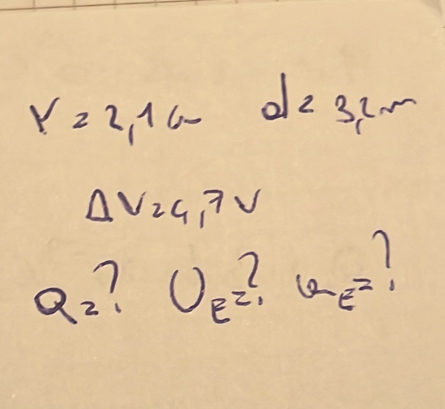 r = 2,1 cm d = 3,2 m
ΔV = 4,7 V
Q = ? U_E = ? u_E = ?